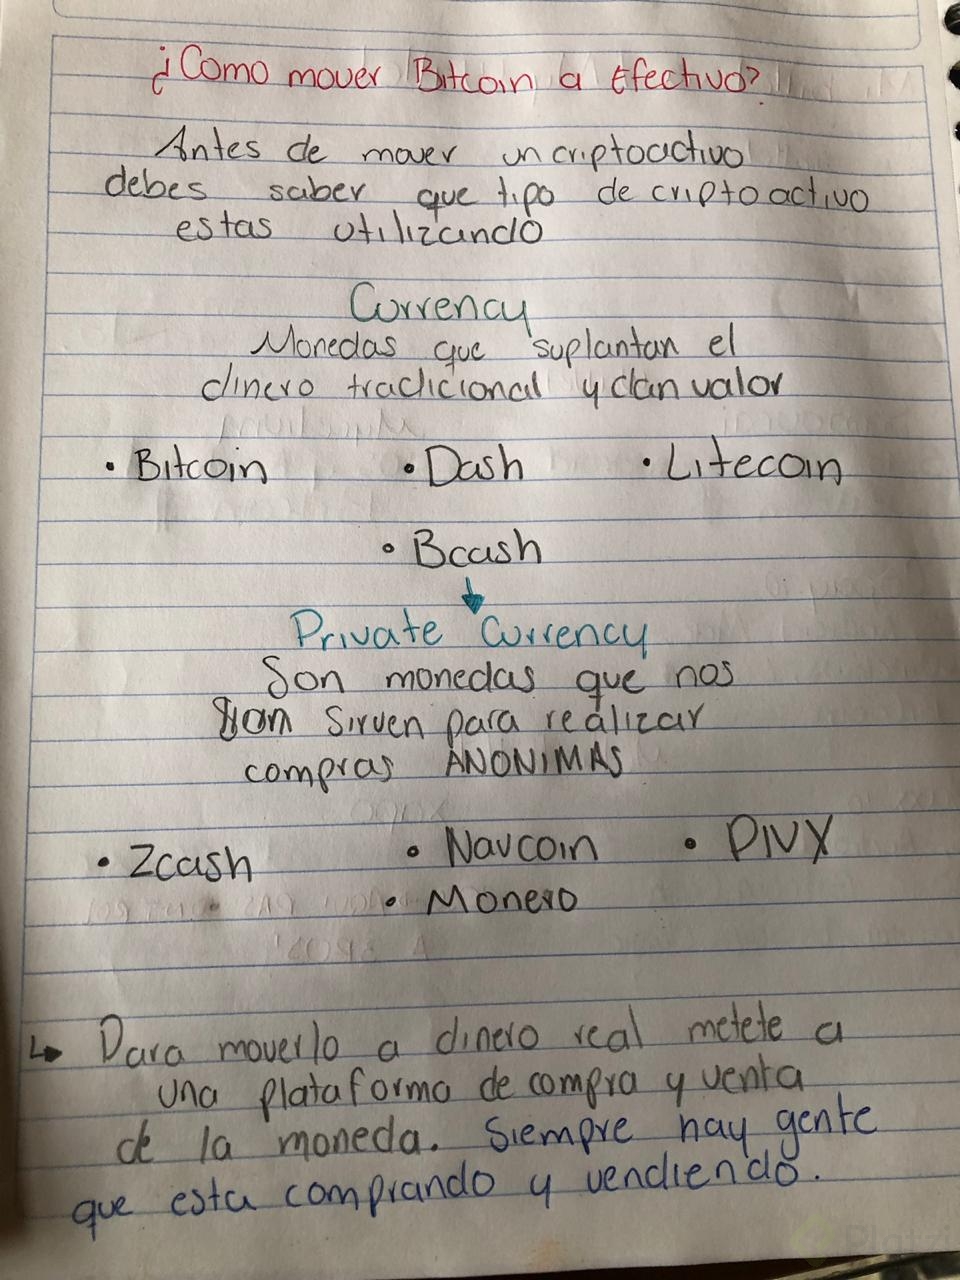 ¿Como mover Bitcoin a Efectivo?
Antes de mover un criptoactivo
debes saber que tipo de criptoactivo
estas utilizando
Currency
Monedas que suplantan el
dinero tradicional y dan valor
• Bitcoin • Dash • Litecoin
• Bcash
Private Currency
Son monedas que nos
sirven para realizar
compras ANONIMAS
• Zcash • Navcoin • PIVX
• Monero
Para moverlo a dinero real metete a
una plataforma de compra y venta
de la moneda. Siempre hay gente
que esta comprando y vendiendo.
Platzi